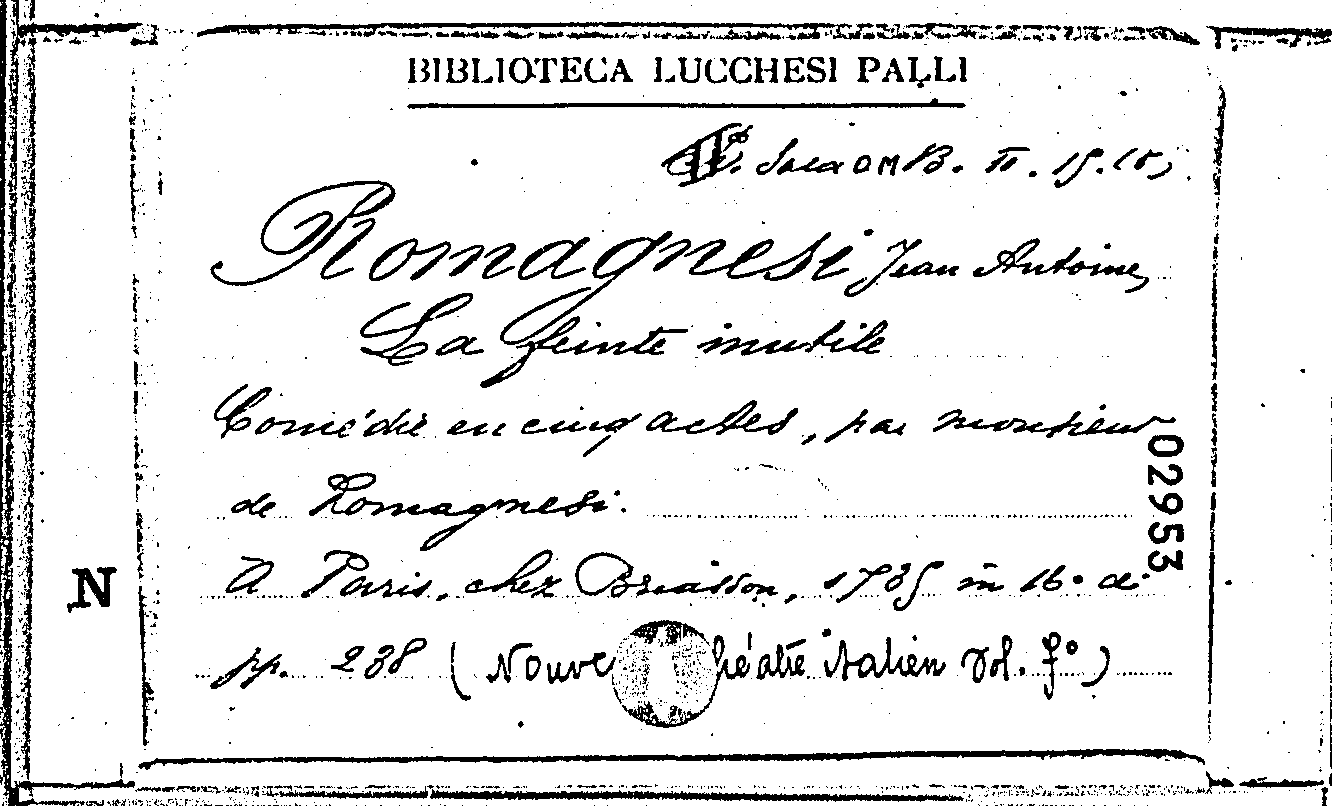 BIBLIOTECA LUCCHESI PALLI
Sala B. II. 15.
Romagnesi Jean Antoine,
La feinte inutile
Comédie en cinq actes, par monsieur
de Romagnesi.
02953
N
A Paris, chez Briasson, 1735 in 16° di
pp. 238 (Nouve héatre italien Vol.